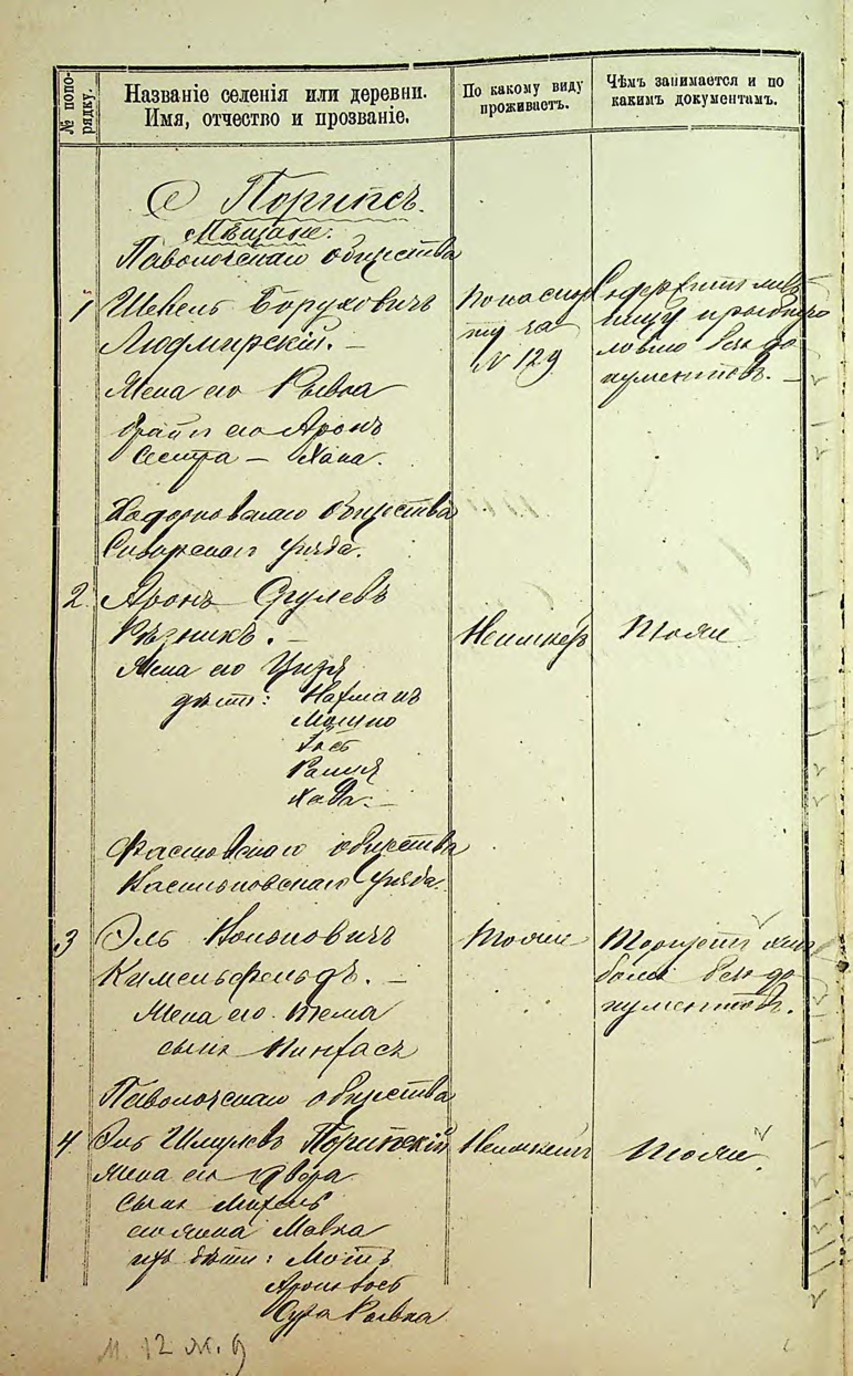 № по по-
рядку.
Названіе селенія или деревни.
Имя, отчество и прозваніе.
По какому виду
проживаетъ.
Чѣмъ занимается и по
какимъ документамъ.
С Порипсъ.
Мѣщане:
Паволочскаго общества
1 Шевель Боруховичъ
Людмирскій. —
Жена его Рывка
братъ его Аронъ
Сестра — Хана.
По паспор
ту за
№ 129
Содержитъ мель
ницу и рыбную
ловлю безъ до
кументовъ. —
Ходорковскаго общества
Сквирскаго уѣзда.
2. Аронъ Срулевъ
Рѣзникъ. —
Жена его
дѣти: Нахманъ
Мошко
Хава. —
Неимеетъ
Тоже
Фастовскаго общества
Васильковскаго уѣзда.
3 Эль Вольковичъ
Кимельфельдъ. —
Жена его Тема
сынъ Пинхасъ
Тоже
Торгуетъ
безъ до
кументовъ.
Паволочскаго общества
4. Эль Шмулевъ Порипскій
Жена его Двора
сынъ Михель
его жена Малка
ихъ дѣти: Мотъ
Сура Рывка
Неимеетъ
Тоже.
М. 12 ж. 9